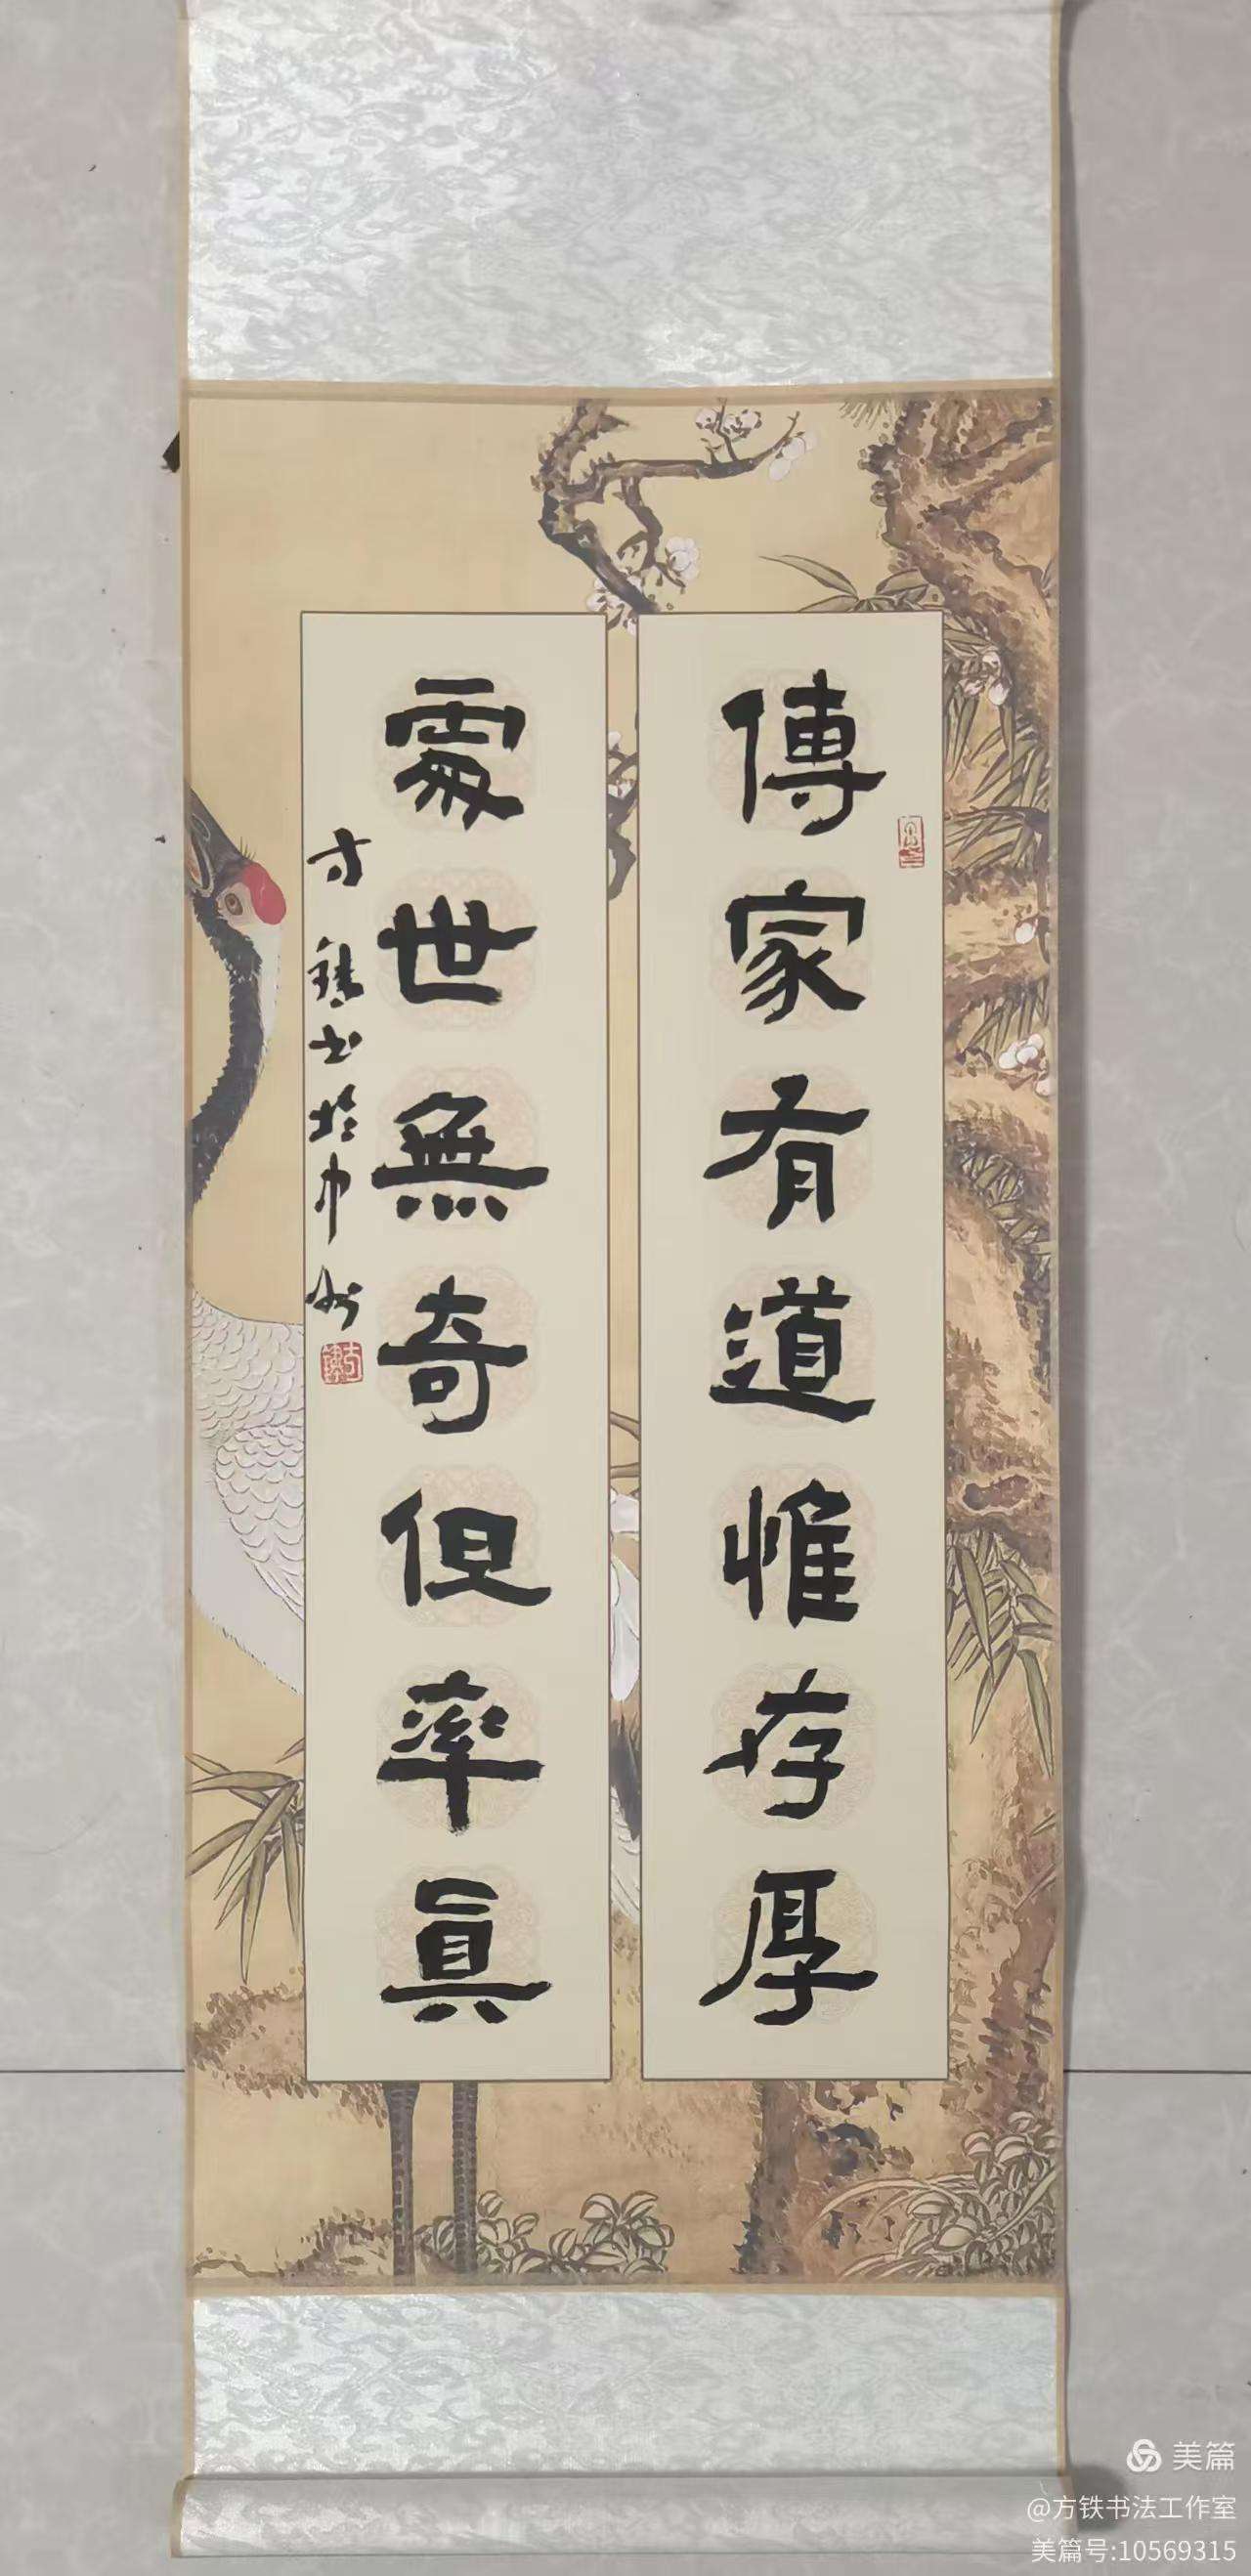 傳家有道惟存厚
處世無奇但率真
方鐵書於中州
美篇
@方铁书法工作室
美篇号:10569315